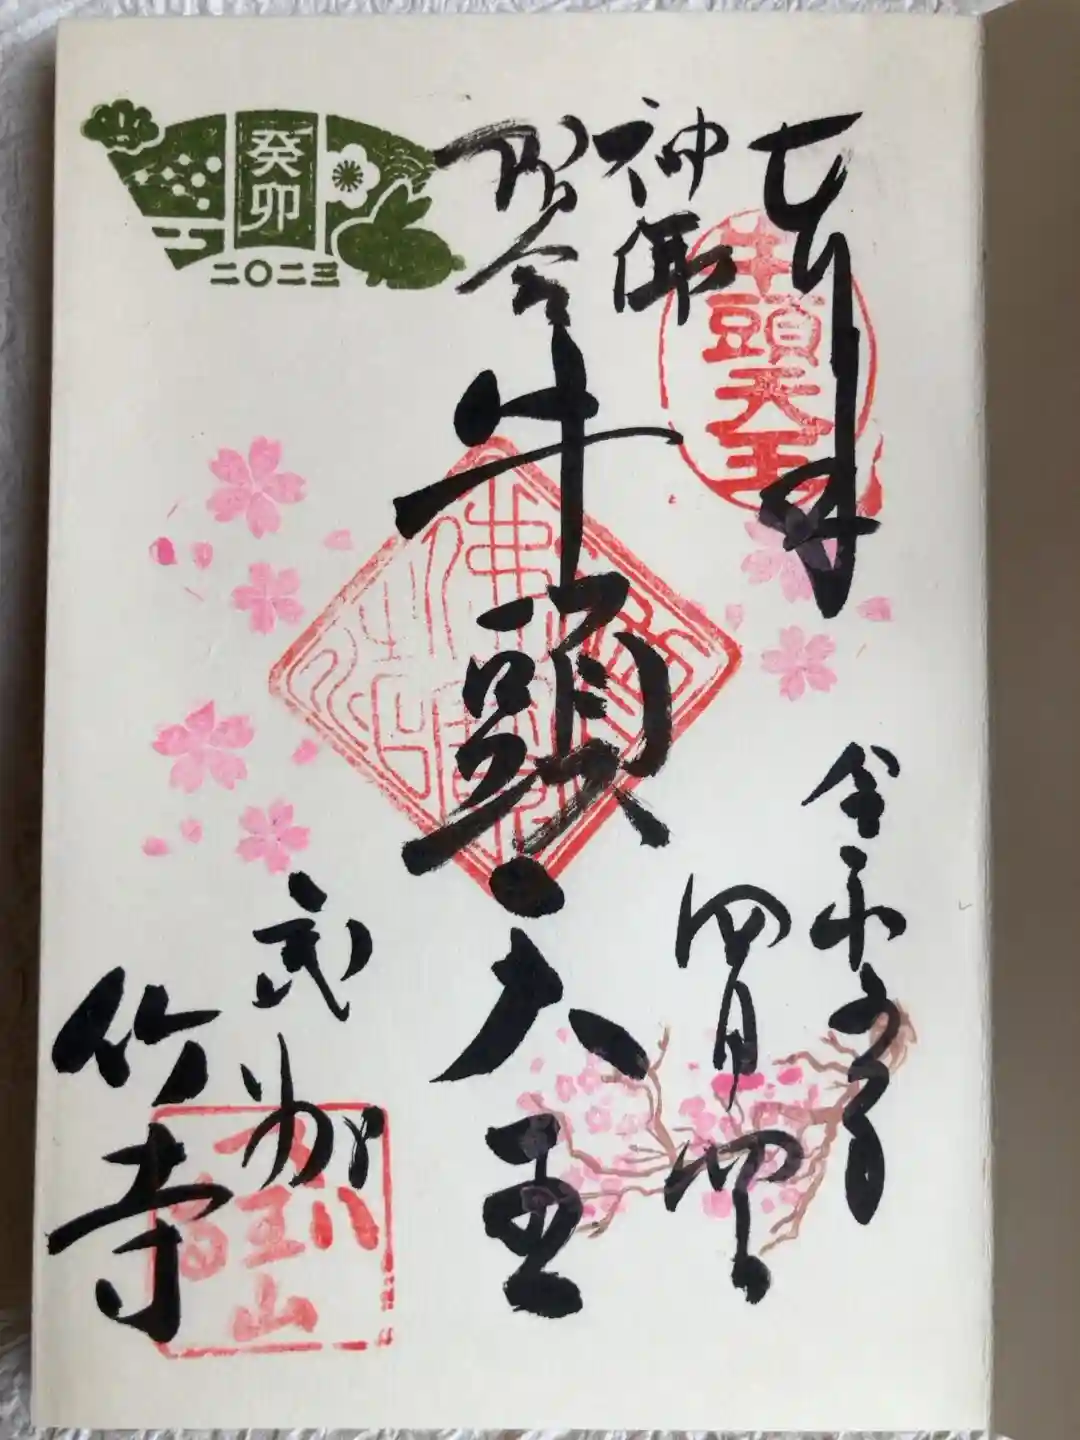 奉拝
令和五年
四月四日
神佛習合
牛頭天王
武州
竹寺
癸卯
二〇二三
牛頭天王
八王山